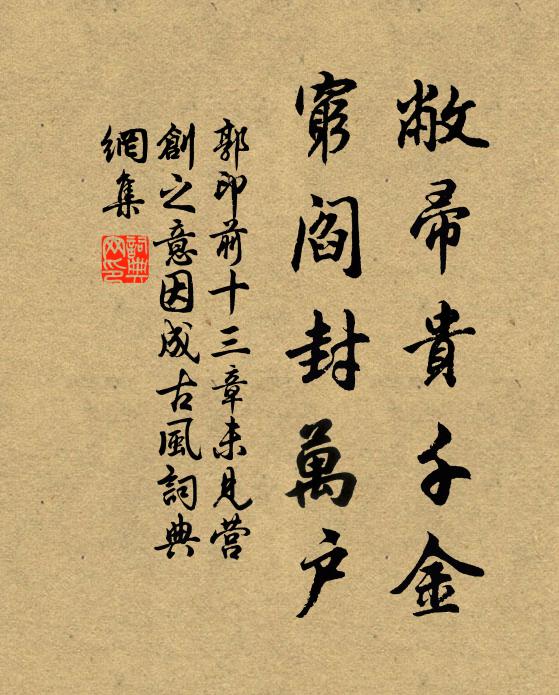 敝帚貴千金
窮閻封萬户
郭印前十三章未見营
創之意因成古風詞典
網集
詞典网印